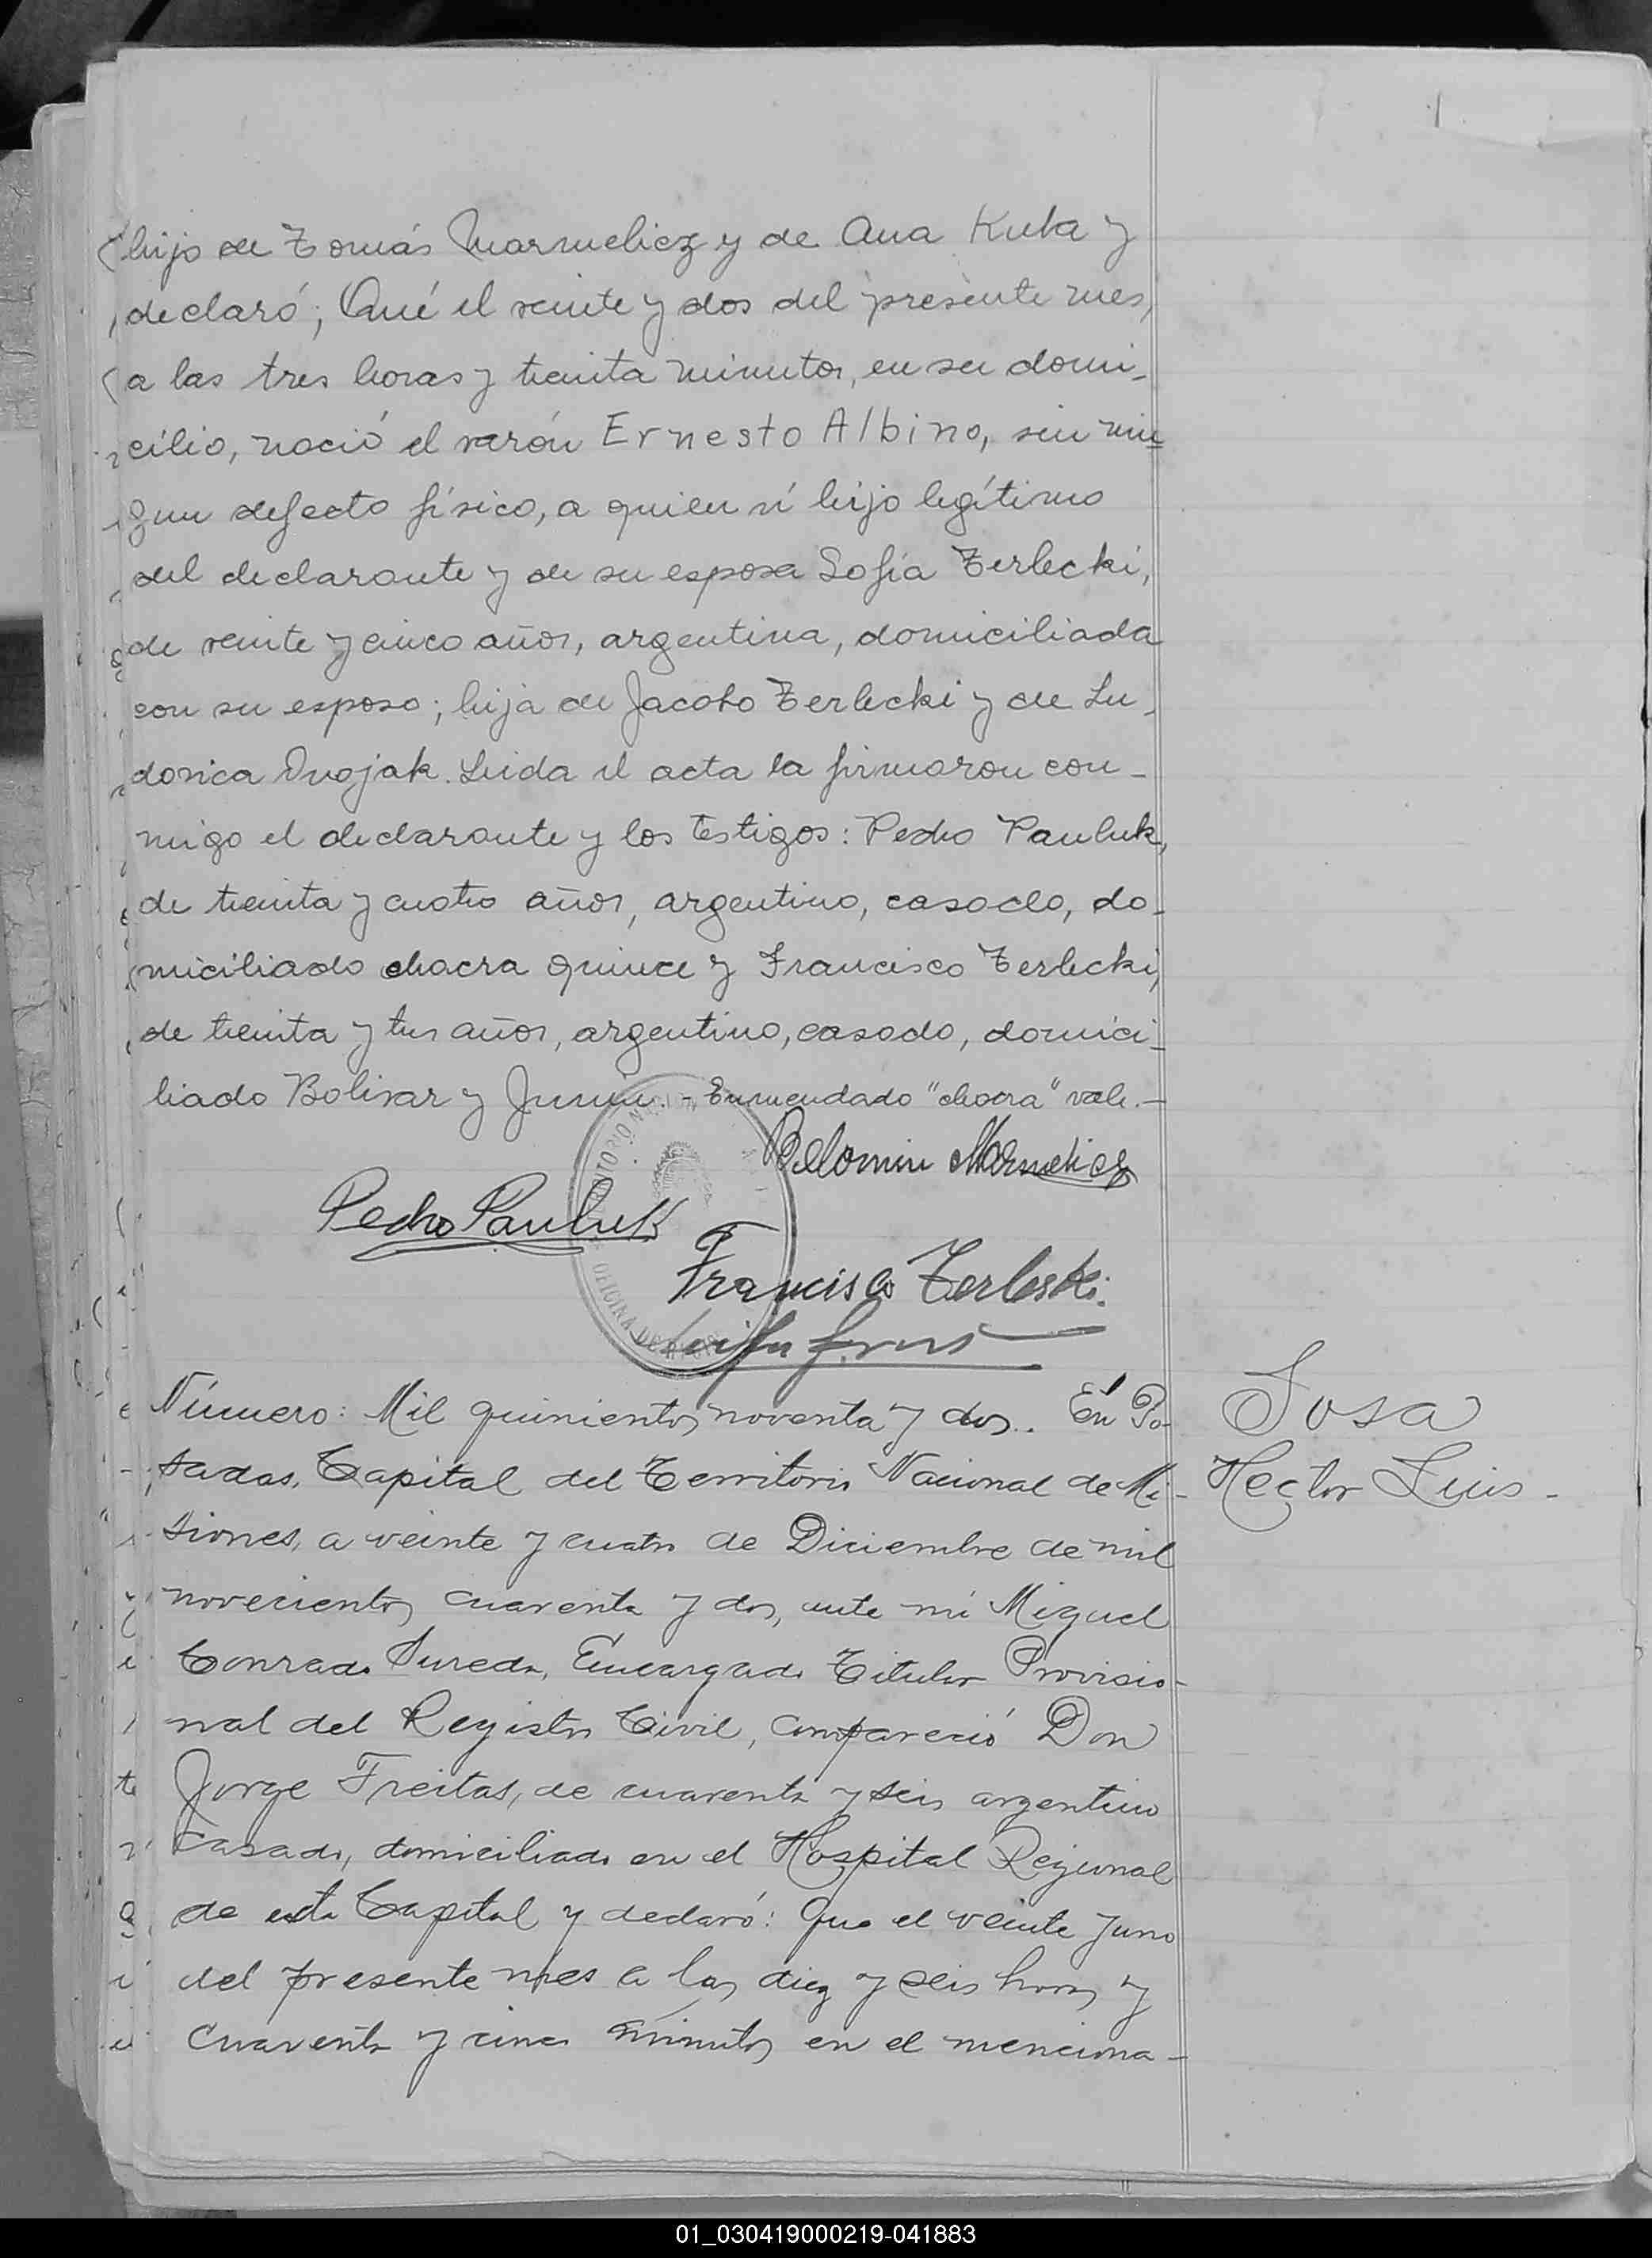 hijo de Tomás Marmelicz y de Ana Kuta y
declaró; Qué el veinte y dos del presente mes,
a las tres horas y treinta minutos, en su domi-
cilio, nació el varón Ernesto Albino, sin nin=
gun defecto físico, a quien vi hijo legítimo
del declarante y de su esposa Sofía Terlecki,
de veinte y cinco años, argentina, domiciliada
con su esposo; hija de Jacobo Terlecki y de Lu-
dovica Dvojak. Leida el acta la firmaron con-
migo el declarante y los testigos: Pedro Pauluk,
de treinta y cuatro años, argentino, casado, do-
miciliado chacra quince y Francisco Terlecki,
de treinta y tres años, argentino, casado, domici-
liado Bolivar y Junin. - Enmendado "chacra" vale. -
Marmelicz
Pedro Pauluk
Francisco Terleski.
OFICINA DE
Número: Mil quinientos noventa y dos. En Po-
sadas, Capital del Territorio Nacional de Mi-
siones, a veinte y cuatro de Diciembre de mil
novecientos cuarenta y dos, ante mi Miguel
Conrado Sureda, Encargado Titular Provisio-
nal del Registro Civil, compareció Don
Jorge Freitas, de cuarenta y seis argentino
casado, domiciliado en el Hospital Regional
de esta Capital y declaró: Que el veinte y uno
del presente mes a las diez y seis horas y
cuarenta y cinco minutos en el menciona-
Sosa
Hector Luis -
01_030419000219-041883